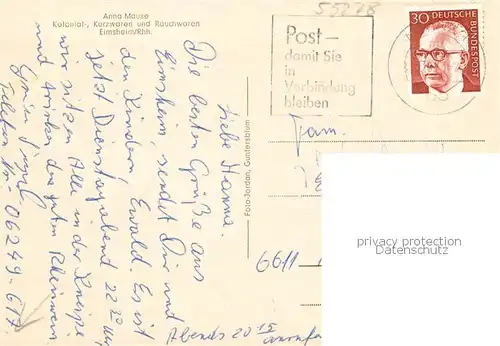 Anna Mause
Kolonial-, Kurzwaren und Rauchwaren
Eimsheim/Rhh.
55278
Post –
damit Sie
in
Verbindung
bleiben
30 DEUTSCHE BUNDESPOST
Liebe Hanna.
Die besten Grüße aus
Eimsheim, sendt Dir und
den Kindern, Ewald. Es ist
jetzt Dienstagabend 22 20 Uhr
wir sitzen Alle in der Kneipe
und trinken den guten Rheinwein
Telefon Nr- 06249-617
Abends 20 15
Foto-Jordan, Guntersblum
Fam.
6611
privacy protection
Datenschutz